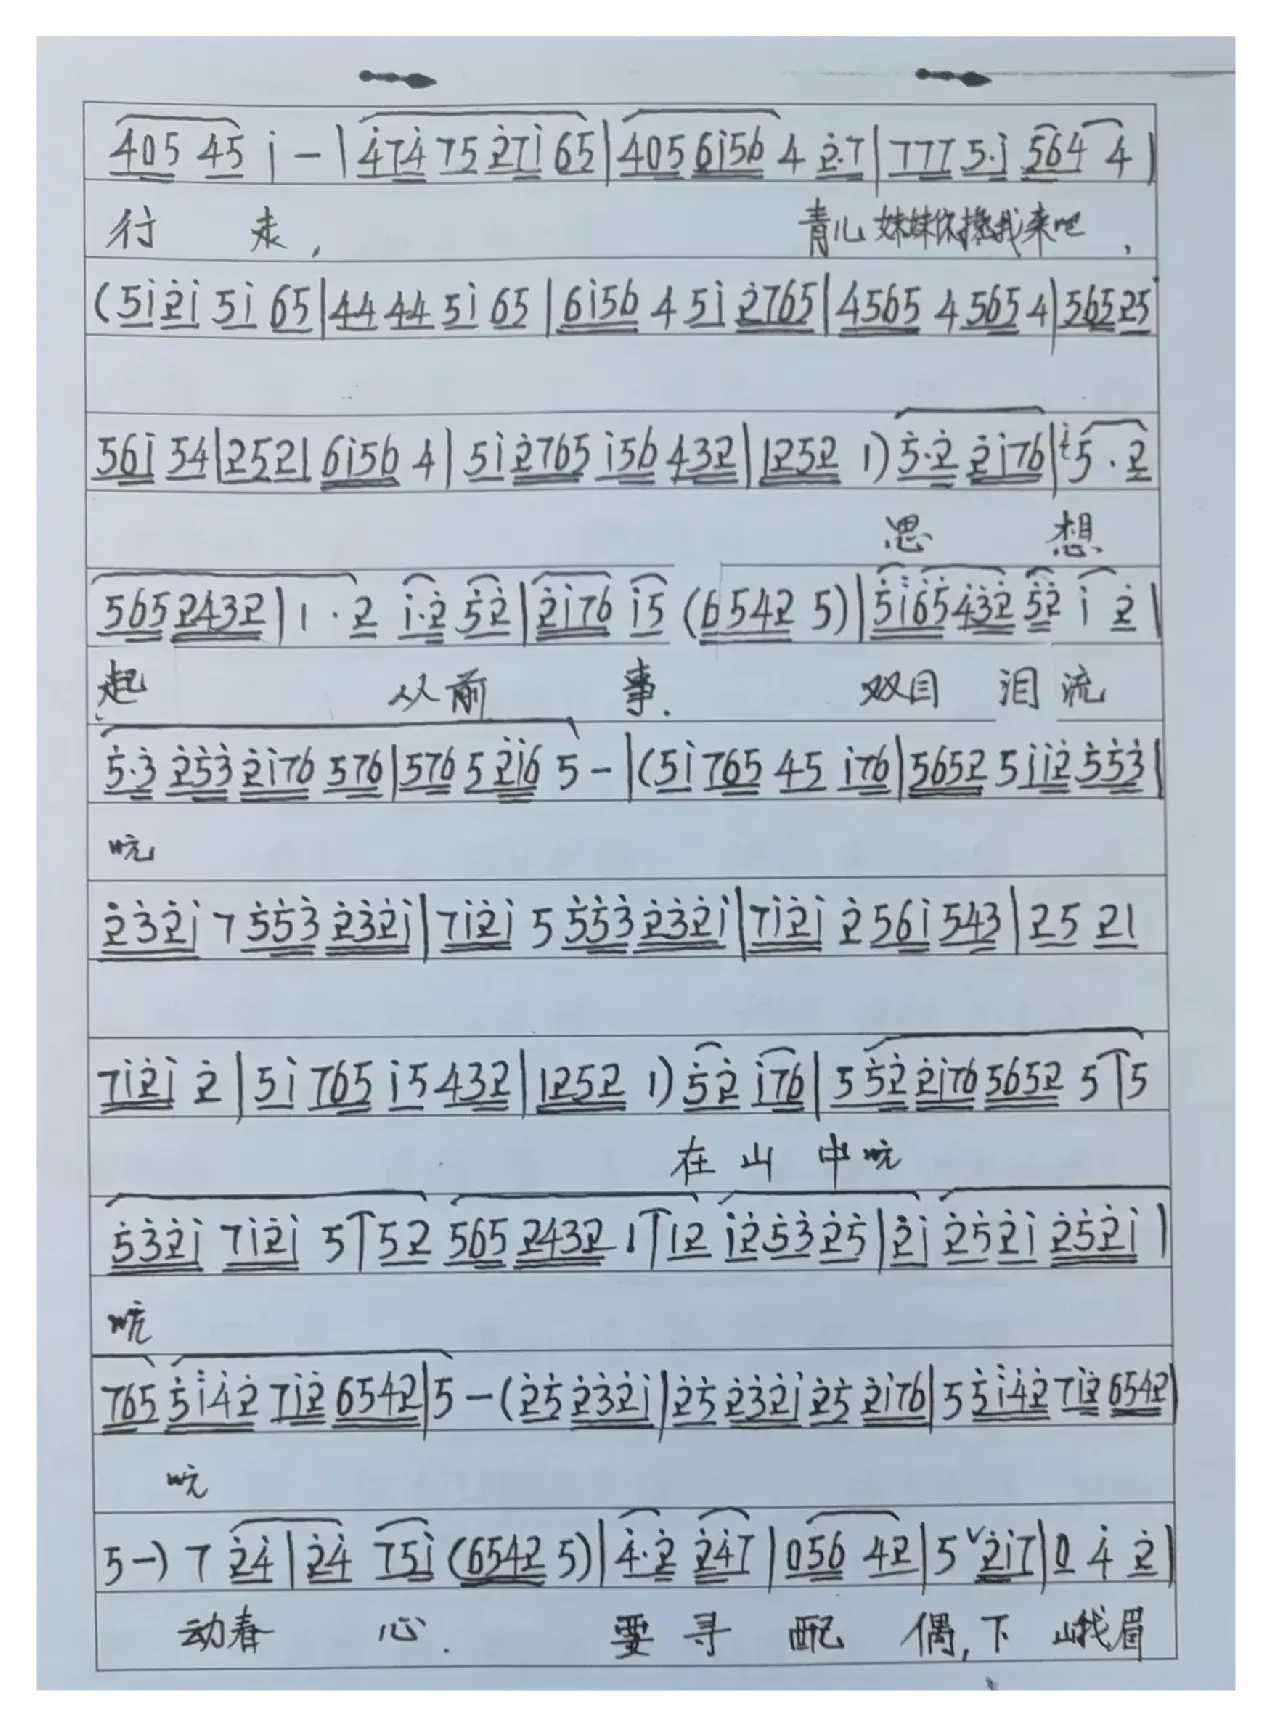 405 45 i - | 474 75 27i 65 | 405 6i56 4 2·7 | 777 5·i 564 4 |
行 走, 青儿妹妹你搀我来吧,
(5i2i 5i 65 | 44 44 5i 65 | 6i56 4 5i 2765 | 4565 4 565 4 | 565 25
56i 54 | 2521 6i56 4 | 5i 2765 i56 432 | 1252 1) 5·2 2i76 | i5 · 2
思 想
565 2432 | 1 · 2 i·2 52 | 2i76 i5 (6542 5) | 5i65 432 52 i 2 |
起 从前 事. 双目 泪流
5·3 253 2i76 576 | 576 5 2i6 5 - | (5i 765 45 i76 | 5652 5 ii2 553 |
吭
232i 7 553 232i | 7i2i 5 553 232i | 7i2i 2 56i 543 | 25 21
7i2i 2 | 5i 765 i5 432 | 1252 1) 52 i76 | 5 52 2i76 5652 5 5
在山 中吭
532i 7i2i 5 52 565 2432 1 12 i2 53 25 | 2i 252i 252i |
吭
765 5i42 7i2 6542 | 5 - (25 232i | 25 232i 25 2i76 | 5 5i42 7i2 6542 |
吭
5 -) 7 24 | 24 75i (6542 5) | 4·2 247 | 056 42 | 5 ˅2i7 | 0 4 2 |
动春 心. 要寻 配 偶,下 峨眉